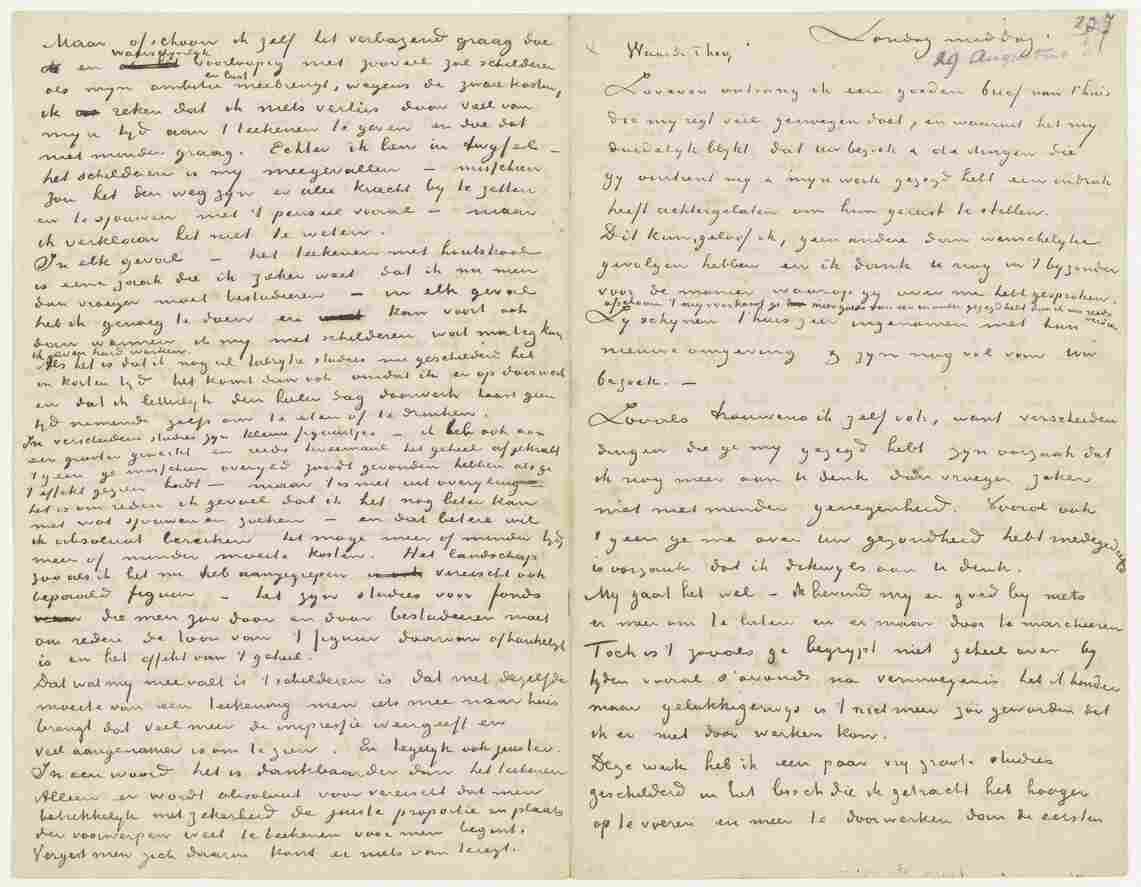 Maar ofschoon ik zelf het verbazend graag doe
waarschijnlijk
en voorloopig niet zooveel zal schilderen
en lust
als mijn ambitie meebrengt, wegens de zware kosten,
ik reken dat ik niets verlies door veel van
mijn tijd aan 't teekenen te geven en doe dat
niet minder graag. Echter ik ben in twyfel –
het schilderen is my meegevallen – misschien
zou het den weg zyn er alle kracht by te zetten
en te spouwen met 't penseel vooral – maar
ik verklaar het niet te weten.
In elk geval – het teekenen met houtskool
is eene zaak die ik zeker weet dat ik nu meer
dan vroeger moet bestudeeren – in elk geval
heb ik genoeg te doen en kan voort ook
door wanneer ik my met schilderen wat matig kan
ik even hard werken.
Als het is dat ik nog al talryke studies nu geschilderd heb
in korten tyd het komt dan ook omdat ik er op doorwerk
en dat ik letterlyk den heelen dag doorwerk haast geen
tyd nemende zelfs om te eten of te drinken.
In verscheidene studies zyn kleine figuurtjes – ik heb ook aan
een grooter gewerkt en reeds tweemaal het geheel afgekrabt
't geen ge misschien overyld zoudt gevonden hebben als ge
't effekt gezien hadt – maar 't is niet uit overyling
het is om reden ik gevoel dat ik het nog beter kan
met wat spouwen en zoeken – en dat betere wil
ik absoluut bereiken het moge meer of minder tyd
meer of minder moeite kosten. Het landschap
zooals ik het nu heb aangegrepen vereischt ook
bepaald figuur – het zyn studies voor fonds
die men zoo door en door bestudeeren moet
om reden de toon van 't figuur daarvan afhankelyk
is en het effekt van 't geheel.
Dat wat my meevalt is 't schilderen is dat met dezelfde
moeite van een teekening men iets mee naar huis
brengt dat veel meer de impressie weergeeft en
veel aangenamer is om te zien. En tegelyk ook juister.
In een woord het is dankbaarder dan het teekenen
Alleen er wordt absoluut voor vereischt dat men
betrekkelyk met zekerheid de juiste proportie en plaats
der voorwerpen weet te teekenen voor men begint.
Vergist men zich daarin komt er niets van terecht.
227
Zondag middag.
29 Augustus
Waarde Theo,
Zooeven ontvang ik een goeden brief van t'huis
die my regt veel genoegen doet, en waaruit het my
duidelyk blykt dat uw bezoek & de dingen die
gy omtrent my & myn werk gezegd hebt een indruk
heeft achtergelaten om hen gerust te stellen.
Dit kan, geloof ik, geen andere dan wenschelyke
gevolgen hebben en ik dank u nog in 't byzonder
voor de manier waarop gy over me hebt gesproken.
ofschoon 't my voorkomt ge meer goeds van een en ander gezegd hebt dan ik nu reeds
verdien
Zy schynen t'huis zeer ingenomen met hun
nieuwe omgeving & zyn nog vol van uw
bezoek. –
Zooals trouwens ik zelf ook, want verscheiden
dingen die ge my gezegd hebt zyn oorzaak dat
ik nog meer aan u denk dan vroeger zeker
niet met minder genegenheid. Vooral ook
't geen ge me over uw gezondheid hebt medegedeeld
is oorzaak dat ik dikwyls aan u denk.
My gaat het wel – ik bevind my er goed by niets
er voor om te laten en er maar door te marcheeren
Toch is 't zooals ge begrypt niet geheel over by
tyden vooral s'avonds na vermoeyenis het 't hindert
maar gelukkigerwys is 't niet meer zoo geworden dat
ik er niet door werken kan.
Deze week heb ik een paar vry groote studies
geschilderd in het bosch die ik getracht heb hooger
op te voeren en meer te doorwerken dan de eersten